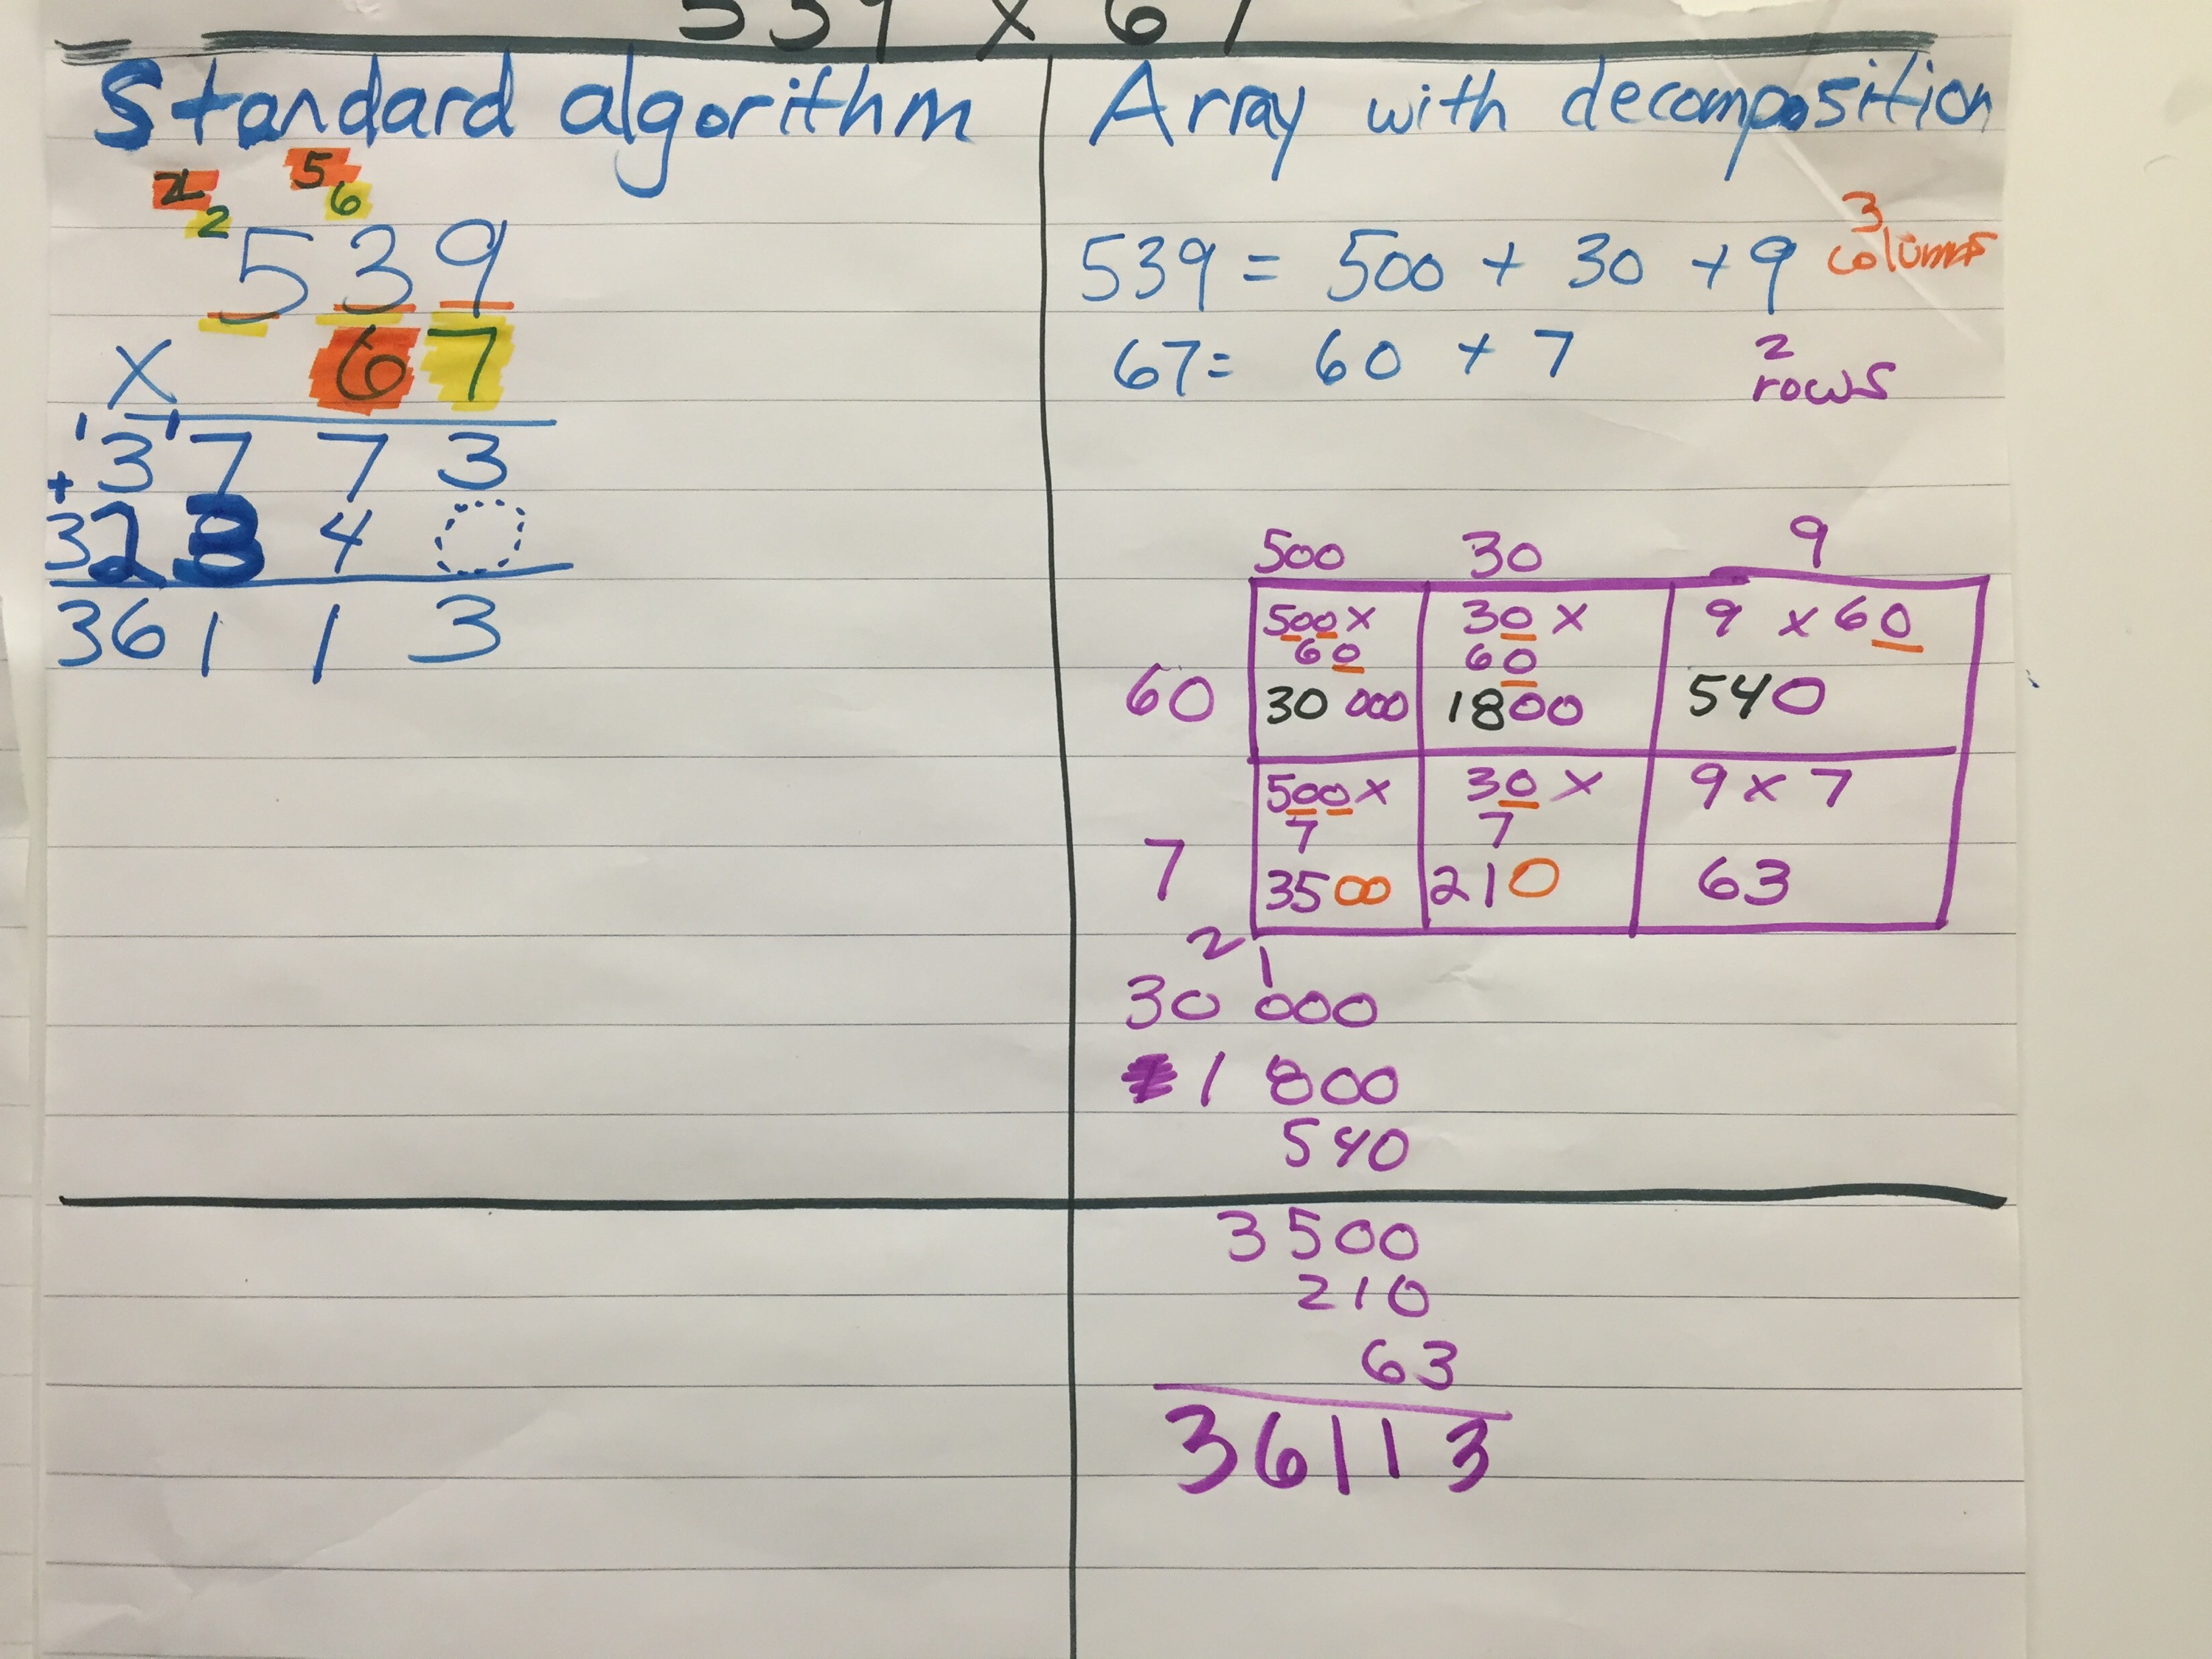 539 x 67
Standard algorithm
2 5
2 6
539
x 67
1 1
3773
+
32340
36113
Array with decomposition
539 = 500 + 30 + 9 3 columns
67 = 60 + 7 2 rows
500 30 9
60
500 x 60
30 000
30 x 60
1800
9 x 60
540
7
500 x 7
3500
30 x 7
210
9 x 7
63
2 1
30 000
1 800
540
3500
210
63
36113